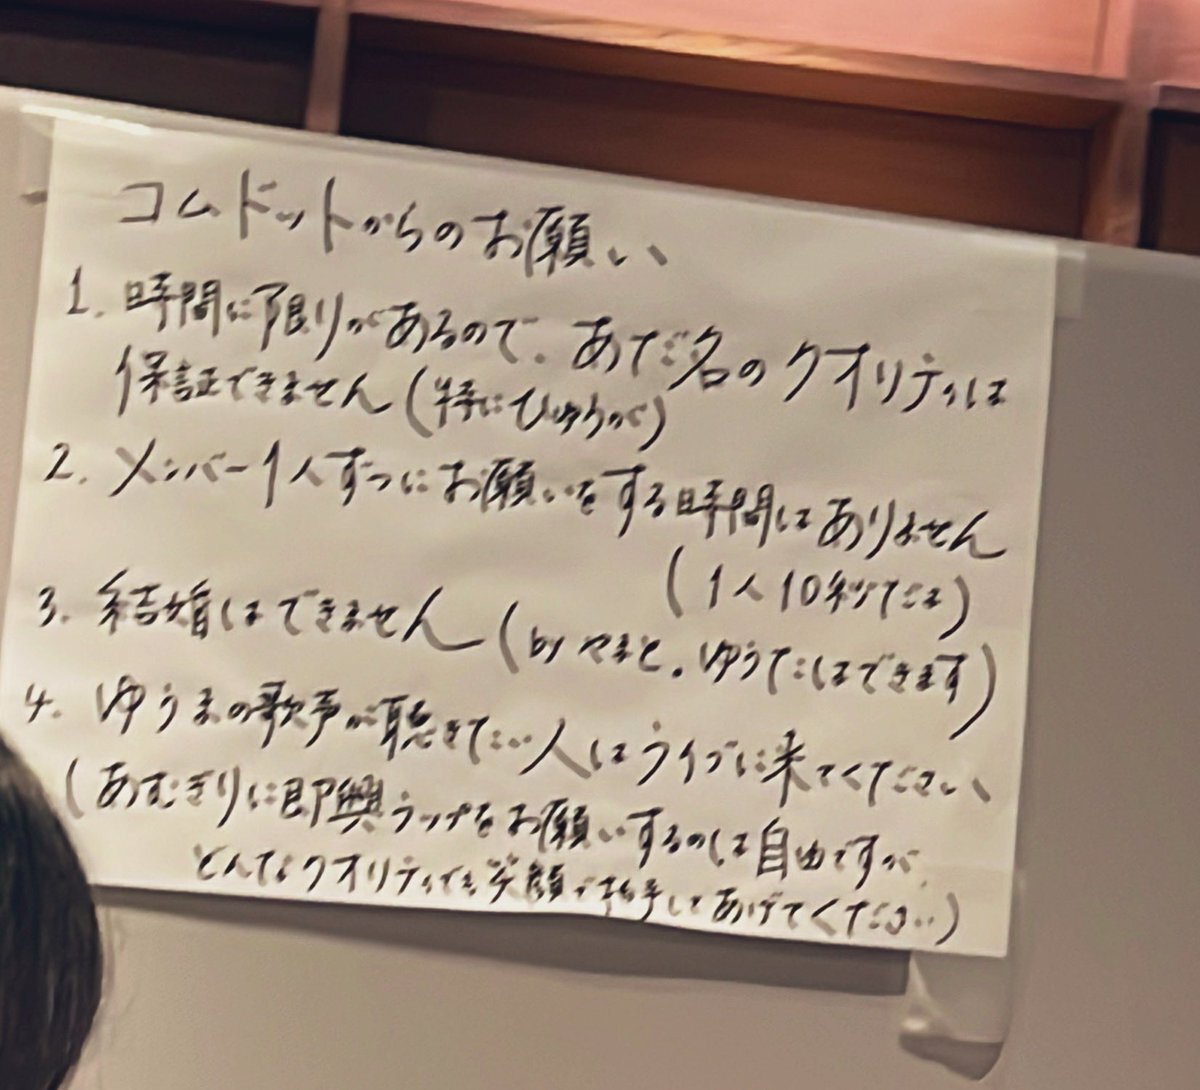 コムドットからのお願い
1. 時間に限りがあるので、あだ名のクオリティは
保証できません(特にひゅうが)
2. メンバー1人ずつにお願いをする時間はありません
(1人10秒だよ)
3. 結婚はできません(by やまと。ゆうたはできます)
4. ゆうまの歌声が聴きたい人はライブに来てください
(あむぎりに即興ラップをお願いするのは自由ですが、
どんなクオリティでも笑顔で拍手してあげてください)